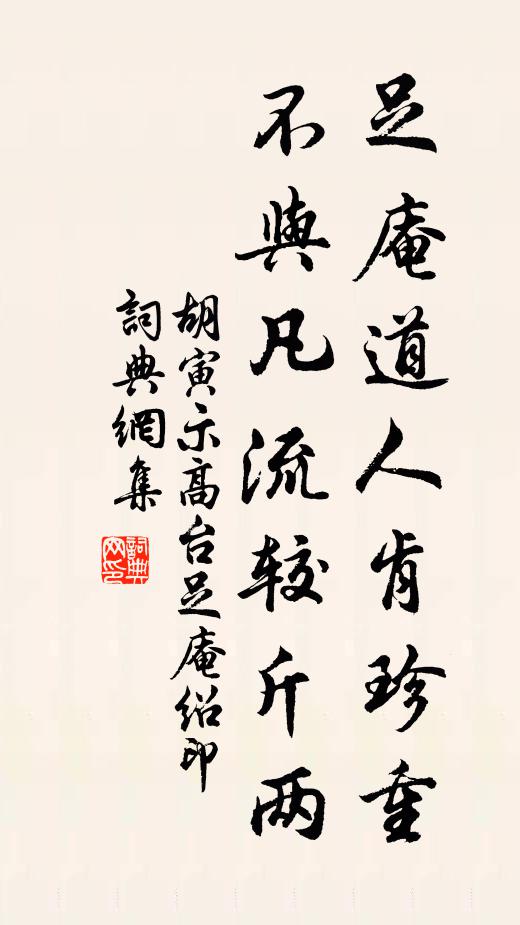 足庵道人肯珍重
不與凡流較斤两
胡寅示高台足庵紹印
詞典網集
詞典网印